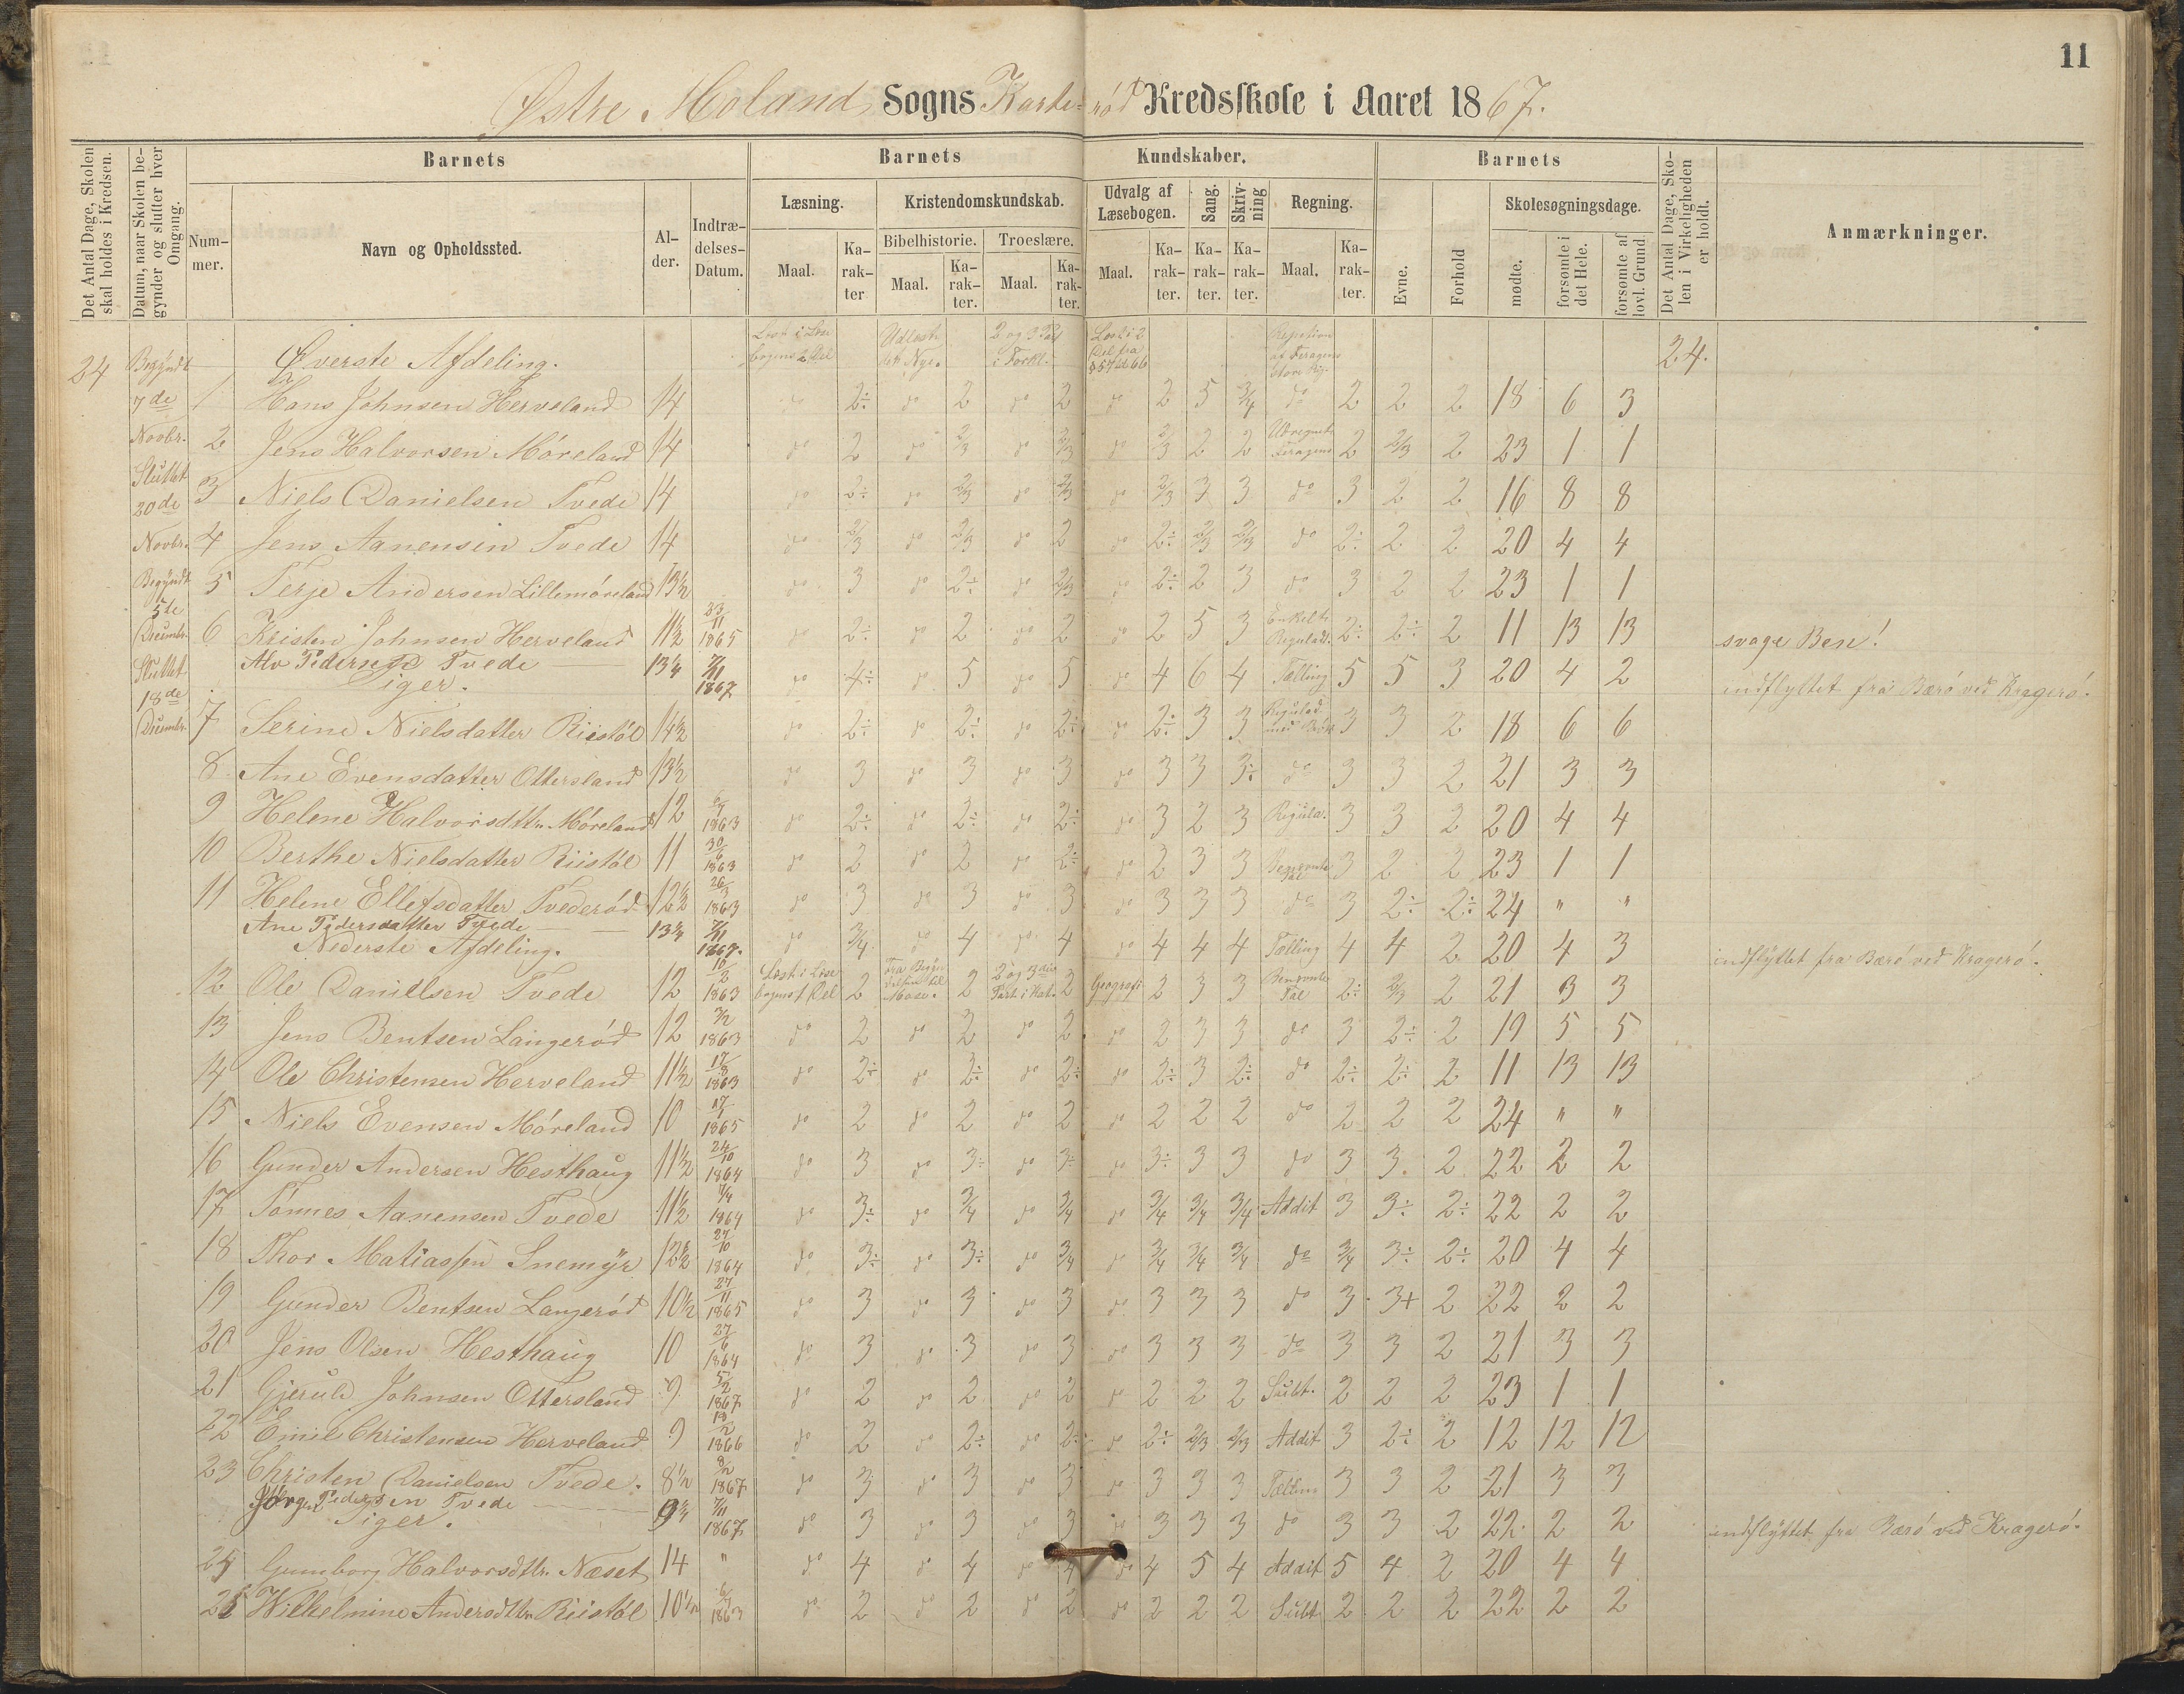 11
Østre Moland Sogns Karterød Kredsskole i Aaret 1867.
Det Antal Dage, Skolen skal holdes i Kredsen.
Datum, naar Skolen begynder og slutter hver Omgang.
Barnets
Barnets Kundskaber.
Barnets
Det Antal Dage, Skolen i Virkeligheden er holdt.
Anmærkninger.
Nummer.
Navn og Opholdssted.
Alder.
Indtrædelses-Datum.
Læsning.
Kristendomskundskab.
Udvalg af Læsebogen.
Sang.
Skrivning
Regning.
Evne.
Forhold
Skolesøgningsdage.
Bibelhistorie.
Troeslære.
Maal.
Karakter
Maal.
Karakter.
Maal.
Karakter.
Maal.
Karakter.
Karakter.
Karakter.
Maal.
Karakter.
mødte.
forsømte i det Hele.
forsømte af lovl. Grund.
24 Begyndt Øverste Afdeling. Læst i Læsebogens 2 Del 2 og 3 Part i Forkl. Læst i 2 Del fra § 57 til 66 24.
7de 1 Hans Johnsen Herveland 14 do 2÷ do 2 do 2 do 2 5 3/4 do 2 2 2 18 6 3
Novbr. 2 Jens Halvorsen Møreland 14 do 2 do 2/3 do 2/3 do 2/3 2 2 2 2/3 2 23 1 1
Sluttet 20de 3 Niels Danielsen Tvede 14 do 2÷ do 2/3 do 2/3 do 2/3 3 3 do 3 2 2 16 8 8
Novbr. 4 Jens Aanensen Tvede 14 do 2/3 do 2/3 do 2 do 2÷ 2/3 2/3 do 2÷ 2 2 20 4 4
Begyndt 5 Terje Andersen Lillemøreland 13½ do 3 do 2÷ do 2/3 do 2÷ 2 3 do 3 2 2 23 1 1
5te Decembr. 6 Kristen Johnsen Herveland 11½ 23/11 1865 do 2÷ do 2 do 2 do 2 5 3 Enkelt Reguladt. 2÷ 2÷ 2 11 13 13 svage Ben!
Sluttet Alv Pedersen Tvede 13¼ 7/11 1867 do 4÷ do 5 do 5 do 4 6 4 Tælling 5 5 3 20 4 2 indflyttet fra Bærø ved Kragerø.
18de Piger.
Decembr. 7 Serine Nielsdatter Riistøl 14½ do 2÷ do 2÷ do 2÷ do 2÷ 3 3 3 3 2 18 6 6
8 Ane Evensdatter Ottersland 13½ do 3 do 3 do 3 do 3 3 3÷ do 3 3 2 21 3 3
9 Helene Halvorsdttr. Møreland 12 1863 do 2÷ do 2÷ do 2÷ do 3 2 3 Regula. 3 3 2 20 4 4
10 Berthe Nielsdatter Riistøl 11 30/6 1863 do 2 do 2 do 2÷ do 2 3 3 3 2 2 23 1 1
11 Helene Ellefsdatter Tvederød 12½ 26/3 1863 do 3 do 3 do 3 do 3 3 3 do 3 2÷ 2÷ 24 " "
Ane Pedersdatter Tvede 13¼ 7/11 1867. do 3/4 do 4 do 4 do 4 4 4 Tælling 4 4 2 20 4 3 indflyttet fra Bærø ved Kragerø.
Nederste Afdeling.
12 Ole Daniellsen Tvede 12 1863 Læst i Læsebogens 1 Del 2 Fra Begyndelsen til Mose. 2 2 og 3die Part. i Kat. 2 Geografi 2 3 3 Benævnte Tal 2÷ 2/3 2 21 3 3
13 Jens Bentsen Langerød 12 1863 do 2 do 2 do 2 do 2 3 3 do 3 2÷ 2 19 5 5
14 Ole Christensen Herveland 11½ 17/8 1863 do 2÷ do 2÷ do 2÷ do 2÷ 3 2÷ do 2÷ 2÷ 2 11 13 13
15 Niels Evensen Møreland 10 17/1 1865 do 2 do 2 do 2 do 2 2 2 do 2 2 2 24 " "
16 Gunder Andersen Hesthaug 11½ 24/10 1864 do 3 do 3÷ do 3÷ do 3÷ 3 3 do 3 3. 2 22 2 2
17 Tønnes Aanensen Tvede 11½ 7/4 1864 do 3÷ do 3/4 do 3/4 do 3/4 3/4 3/4 Addit 3 3÷ 2÷ 22 2 2
18 Thor Matiassen Snemyr 12½ 27/10 1864 do 3÷ do 3÷ do 3/4 do 3/4 3/4 3/4 do 3/4 3÷ 2÷ 20 4 4
19 Gunder Bentsen Langerød 10½ 27/11 1865 do 3 do 3 do 3 do 3 3 3 do 3 3+ 2 22 2 2
20 Jens Olsen Hesthaug 10 27/6 1864 do 3 do 3 do 3 do 3 3 3 do 3 3 2 21 3 3
21 Gjeruld Johnsen Ottersland 9 5/2 1867 do 2 do 2 do 2 do 2 2 2 Subt. 2 2 2 23 1 1
22 Emil Christensen Herveland 9 1866 do 2 do 2÷ do 2÷ do 2÷ 2/3 2/3 Addit 3 2÷ 2 12 12 12
23 Christen Danielsen Tvede. 8½ 8/2 1867 do 3 do 3 do 3 do 3 3 3 3 3 2 21 3 3
Jørgen Pedersen Tvede 9¼ 7/11 1867 do 3 do 3 do 3 do 3 3 3 do 3 3 2 22 2 2 indflyttet fra Bærø ved Kragerø.
Piger.
25 Gunnborg Halvorsdttr. Næset 14 " do 4 do 4 do 4 do 4 5 4 Addit 5 4 2 20 4 4
Wilhelmine Andersdttr Riistøl 10½ 1863 do 2 do 2 do 2 do 2 2 2 Subt 2 2 2 22 2 2